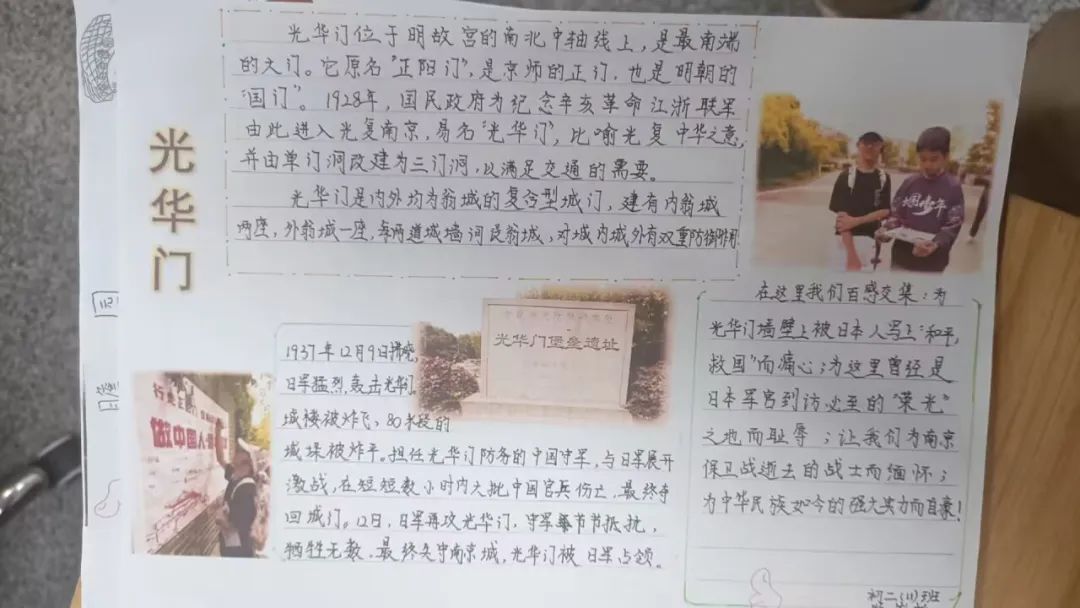 光华门
光华门位于明故宫的南北中轴线上，是最南端
的大门。它原名“正阳门”，是京师的正门，也是明朝的
“国门”。1928年，国民政府为纪念辛亥革命江浙联军
由此进入光复南京，易名“光华门”，比喻光复中华之意，
并由单门洞改建为三门洞，以满足交通的需要。
光华门是内外均为瓮城的复合型城门，建有内瓮城
两座，外瓮城一座，每两道城墙间设瓮城，对城内城外有双重防御作用
1937年12月9日拂晓，
日军猛烈轰击光华门，
城楼被炸飞，80米段的
城垛被炸平。担任光华门防务的中国守军，与日军展开
激战，在短短数小时内大批中国官兵伤亡，最终夺
回城门。12日，日军再攻光华门，守军节节抵抗，
牺牲无数，最终失守南京城，光华门被日军占领。
光华门堡垒遗址
做中国人
在这里我们百感交集：为
光华门墙壁上被日本人写上“和平，
救国”而痛心；为这里曾经是
日本军官到访必至的“荣光”
之地而耻辱；让我们为南京
保卫战逝去的战士而缅怀；
为中华民族如今的强大实力而自豪！
初二(11)班